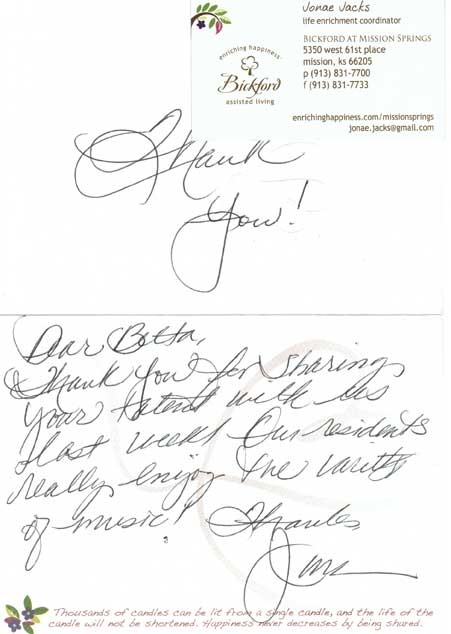 Jonae Jacks
life enrichment coordinator
BICKFORD AT MISSION SPRINGS
5350 west 61st place
mission, ks 66205
p (913) 831-7700
f (913) 831-7733
enrichinghappiness.com/missionsprings
jonae.jacks@gmail.com
enriching happiness
Bickford
assisted living
Thank
You!
Dear Betta,
Thank You for sharing
your talent with us
last week! Our residents
really enjoy the varity
of music!
Thanks,
Thousands of candles can be lit from a single candle, and the life of the
candle will not be shortened. Happiness never decreases by being shared.